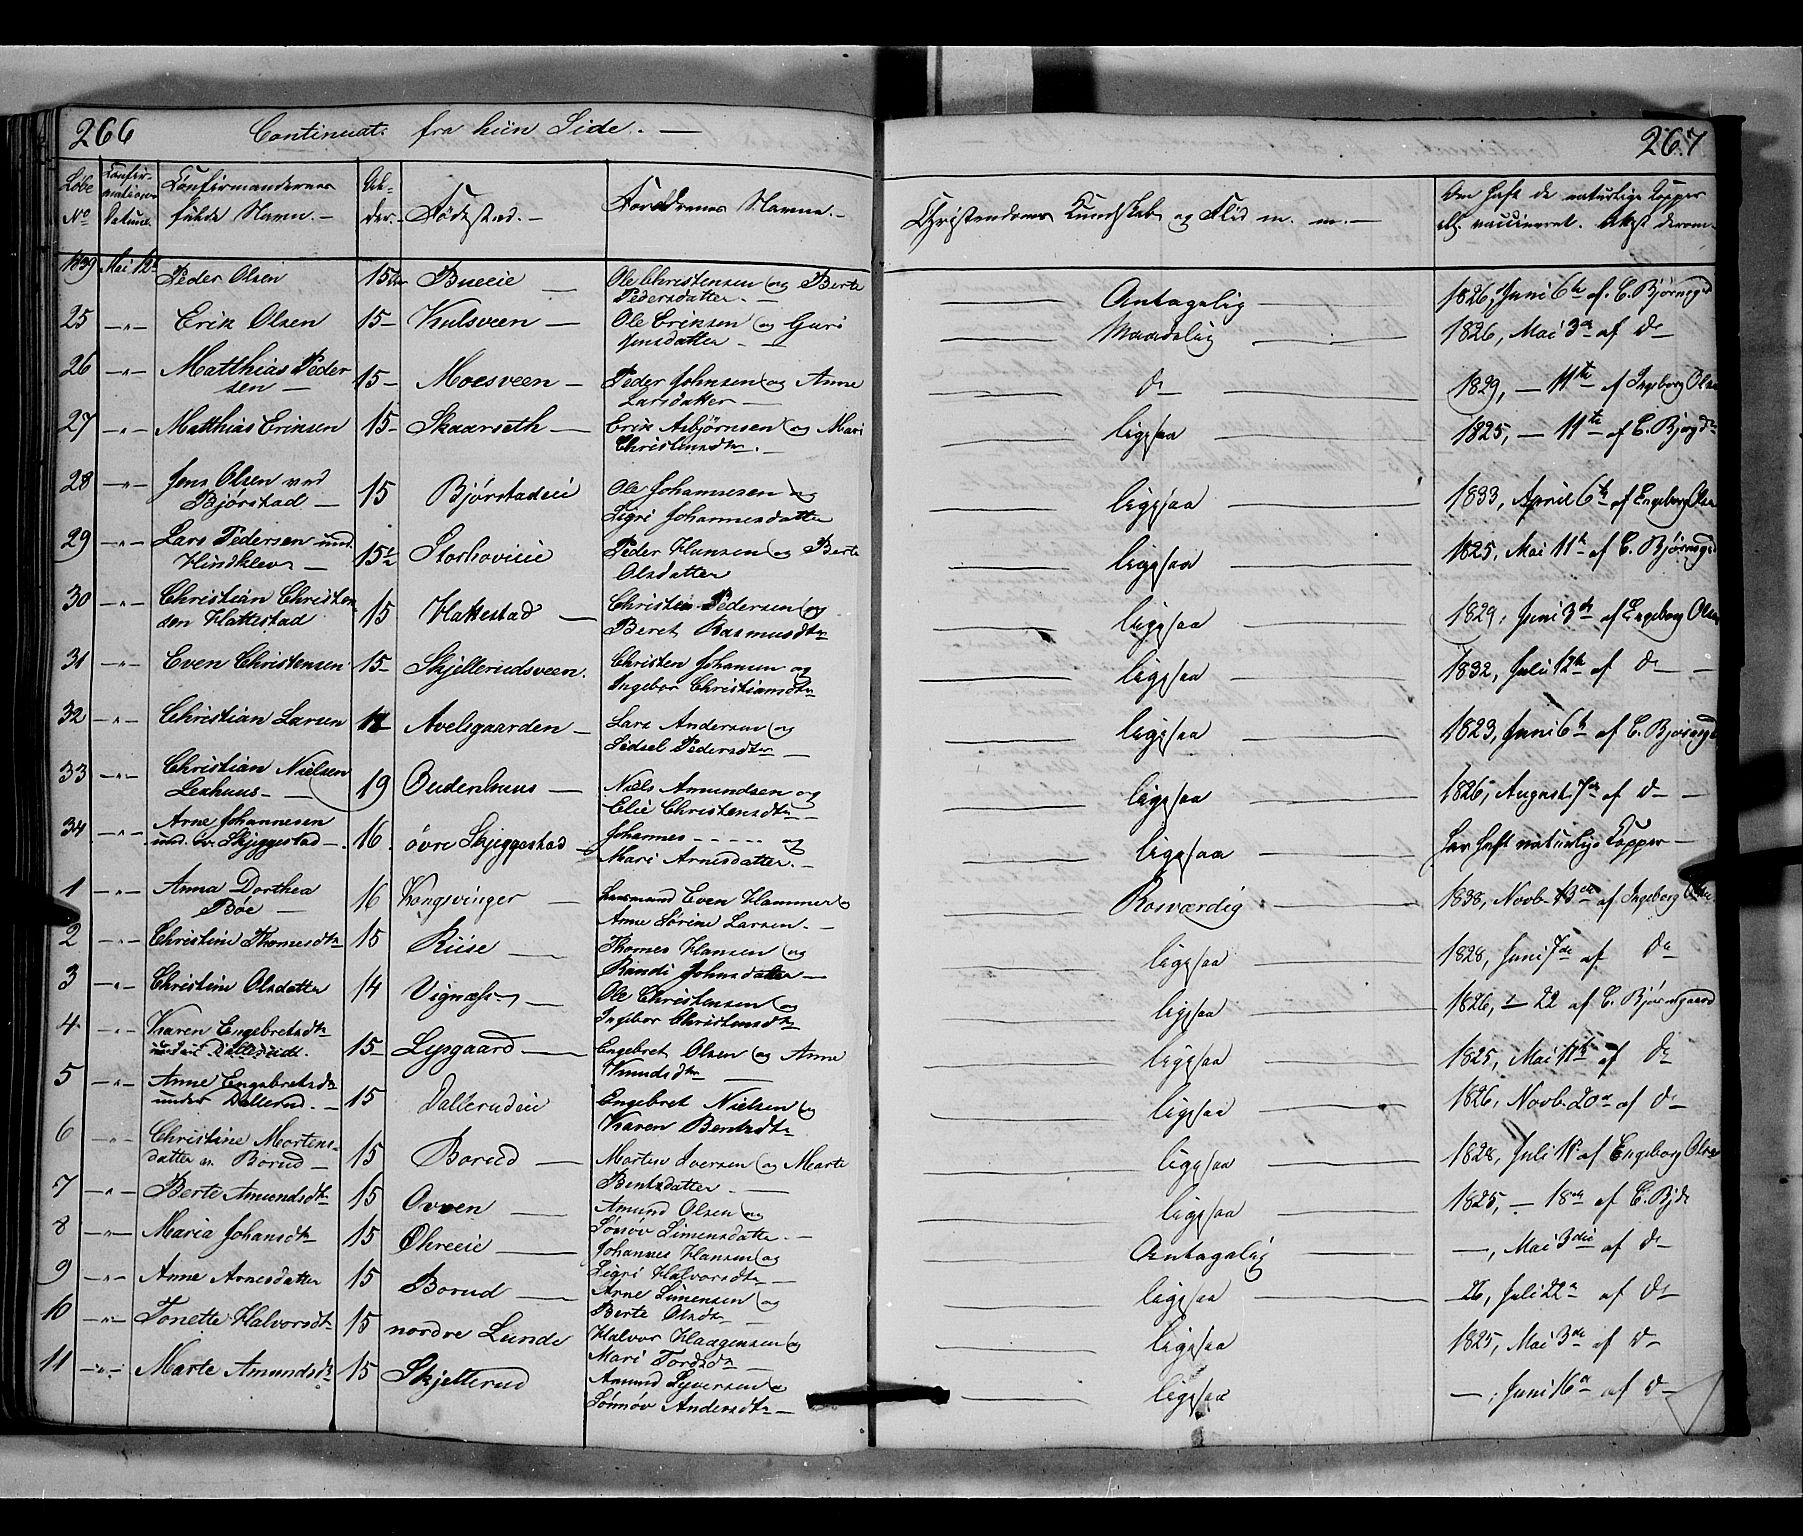 266 Continuat. fra hiin Side. —
267
Løbe No
Confirmations Datum.
Confirmandernes fulde Navn. —
Alder. —
Fødested. —
Forældrenes Navne. —
Christendoms Kundskab og Flid m. m. —
Om haft de naturlige Kopper
ell. vaccineret. Attest derom. —
1839 Mai 12 Peder Olsen 15 Bueeie — Ole Christensen og Berte
Pedersdatter. — Antagelig 1826, Juni 6te af C. Bjørnsgd
25 —"— Erik Olsen 15 — Kulsveen — Ole Eriksen og Guri
Jensdatter — Maadelig 1826, Mai 3de af do —
26 —"— Matthias Peder
sen — 15 — Moesveen — Peder Johnsen og Anne
Larsdatter — do 1829, — 11te af Ingeborg Olsen
27 —"— Matthias Eriksen 15 — Skaarseth — Erik Asbjørnsen og Mari
Christensdtr. — ligesaa 1825, — 11te af C. Bjrgd
28 —"— Jens Olsen ved
Bjørstad — 15 Bjørstadeie Ole Johannesen og
Sigri Johannesdatter ligesaa 1833, April 6te af Engeborg Olsen
29 —"— Lars Pedersen und.
Hindklev — 15½ Storhoveeie Peder Hansen og Berte
Olsdatter ligesaa 1825, Mai 11te af C. Bjørnsgd
30 —"— Christian Christen
sen Hattestad 15 Hattestad — Christen Pedersen og
Beret Rasmusdtr ligesaa 1829, Juni 3de af Engeborg Olsen
31 —"— Even Christensen 15 — Skjellerudsveen. Christen Johansen og
Ingebor Christiansdtr ligesaa 1832, Juli 12te af do —
32 —"— Christian Larsen Avelsgaarden — Lars Andersen og
Sidsel Pedersdtr — ligesaa 1823, Juni 6te af C. Bjørnsgd
33 —"— Christian Nielsen
19 Oudenhuus — Niels Amundsen og
Elie Christensdtr — ligesaa 1826, August 7de af do —
34 —"— Arne Johannesen
und. øv. Skjeggestad —. 16. øvre Skjeggestad — Johannes - - - - - og
Mari Arnesdatter. — ligesaa har haft naturlige Kopper —
1 —"— Anna Dorthea
Bøe — 16 Kongsvinger — Lensmand Even Hammer og
Anne Sørine Larsen. — Rosværdig 1838, Novb. 13de af Ingeborg Olsen
2 —"— Christine Thomesdtr 15 Riise — Thomes Hansen og
Randi Johnsdatter — ligesaa 1828, Juni 7de af do
3 —"— Christine Olsdatter 14 Vignæs — Ole Christensen og
Ingebor Christensdtr ligesaa 1826, — 22 af C. Bjørnsgaard
4 —"— Karen Engebretsdtr
15 — Lysgaard — Engebret Olsen og Anne
Knudsdtr — ligesaa 1825, Mai 11te af do
5 —"— Anne Engebretsdtr
under Dallerud. — 15 Dallerudeie Engebret Nielsen og
Karen Bentsdtr ligesaa 1826, Novb. 20de af do —
6 —"— Christine Mortens-
datter Borud — 15 Borud — Morten Iversen og Marte
Bentsdatter — ligesaa 1828, Juli 1ste af Engeborg Olsen
7 —"— Berte Amundsdtr 15 Ovren — Amund Olsen og
Sønnøv Simensdatter. — ligesaa 1825, — 18de af C. Bjde
8 —"— Maria Johansdtr 15 Øhreeie — Johannes Hansen og
Sigri Halvorsdtr — Antagelig —, Mai 3die af do —
9 —"— Anne Arnesdatter 15 Borud — Arne Simensen og
Berte Olsdtr — ligesaa — 26, Juli 22de af do —
10 —"— Tonette Halvorsdtr 15 nordre Lunde Halvor Haagensen og
Mari Tordsdtr — ligesaa 1825, Mai 3die af do —
11 —"— Marte Amundsdtr 15 Skjellerud Amund Syversen og
Sønnøv Andersdtr — ligesaa —, Juni 16de af do —